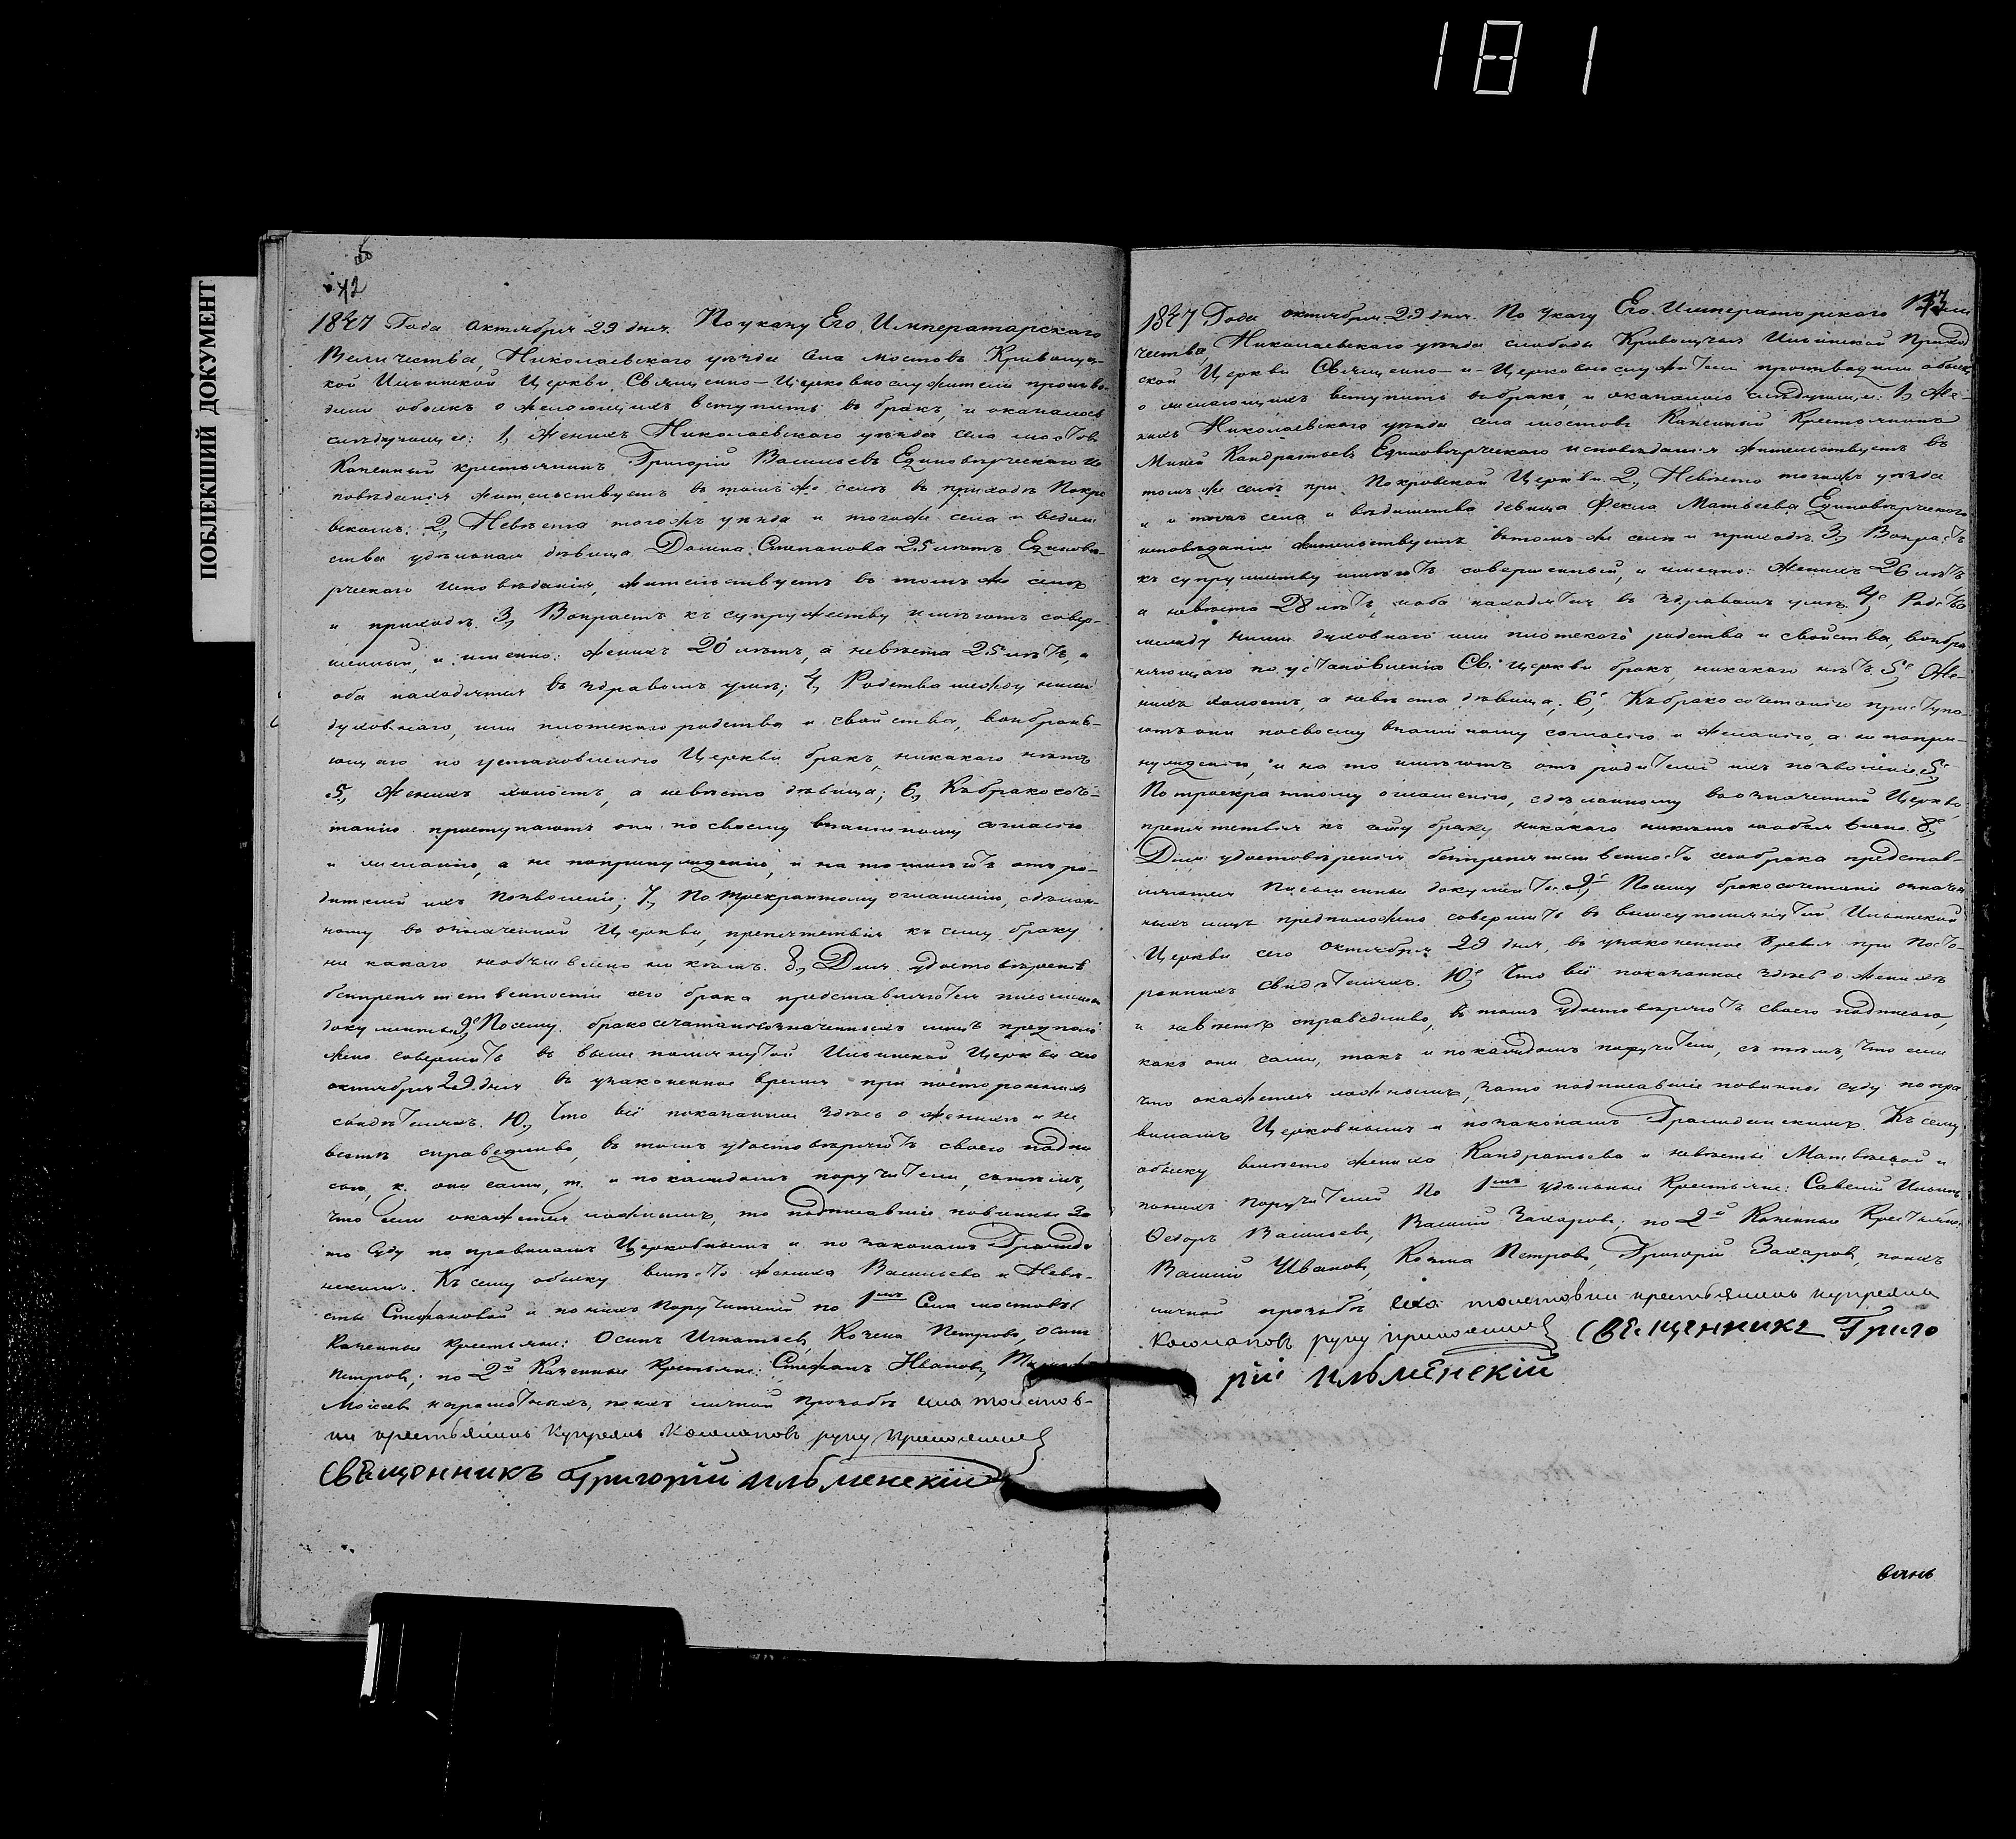 181
ПОБЛЕКШИЙ ДОКУМЕНТ
42
1847 Года октября 29 дня. По указу Его Императарскаго
Величества, Николаевскаго уѣзда Села мостовъ Криволуц-
кой Ильинской Церкви, Священно-Церковнослужители произво-
дили обыскъ о желающихъ вступить въ бракъ, и оказалось
слѣдующее: 1, Женихъ Николаевскаго уѣзда села мостовъ
Казенный крестьянинъ Григорій Васильевъ Единовѣрческаго ис
повѣданія жительствуетъ въ томъ же селѣ въ приходѣ Покро
вскомъ. 2, Невѣста тогожъ уѣзда и тогоже села и ведом
ства удѣльная дѣвица Домна Степанова 25 лѣтъ Единовѣ-
рческаго Исповѣданія, жительствуетъ въ томъ же селѣ
и приходѣ. 3, Возрастъ къ супружеству имѣютъ совер-
шенный, и именно: женихъ 20 лѣтъ, а невѣста 25 лѣтъ, и
оба находятся въ здравомъ умѣ; 4, Родства между ними
духовнаго, или плотскаго родства и свойства, возбраня-
ющаго по установленію Церкви бракъ, никакаго нѣтъ
5, Женихъ холостъ, а невѣста дѣвица; 6, Къ бракосоче-
танію приступаютъ они по своему взаимному согласію
и желанію, а не попринужденію, и на то имѣютъ отъ ро-
дителей ихъ позволеніе; 7, По троекратному оглашенію, сдѣлан-
ному въ означенной Церкви, препятствія къ сему браку
ни какаго необъявлено ни кѣмъ. 8, Для удостовѣренія
безпрепятственности сего брака представляются письменные
документы. 9, Посему бракосочатаніе означенныхъ лицъ предполо
жено совершить въ выше помянутой Ильинской Церкви сего
октября 29 дня въ узаконенное время при постороннихъ
свидѣтеляхъ. 10, Что всё показанное здѣсь о женихѣ и не
вѣстѣ справедливо, въ томъ удостовѣряютъ своею подпи
сью, к. они сами, т. и по каждомъ поручители, съ тѣмъ,
что если окажется ложнымъ, то подписавшіе повинны за
то Суду по правиламъ Церковнымъ и по законамъ Гражда
нскимъ. Къ сему обыску вмѣсто жениха Васильева и Невѣ-
сты Стефановой и по нихъ поручителей по 1мъ Села мостовъ
Казенные крестьяне: Осипъ Игнатьевъ, Козма Петровъ, Осипъ
Петровъ; по 2й Казенные крестьяне: Стефанъ Ивановъ,
Моисеевъ неграмотныхъ, поихъ личной прозьбѣ села толстов-
ки крестьянинъ Купреянъ Колмаковъ руку приложилъ
Священникъ Григорій Ильменскій
43
1847 Года октября 29 дня. По Указу Его Императорскаго Вели
чества, Николаевскаго уѣзда слободы Криволучья Ильинской Приход
ской Церкви Священно-и-Церковнослужители производили обыскъ
о желающихъ вступить въ бракъ, и оказалось слѣдующее: 1, Же-
нихъ Николаевскаго уѣзда села мостовъ Казенный Крестьянинъ
Миней Кандратьевъ Единовѣрческаго исповѣданія жительствуетъ въ
томъ же селѣ при Покровской Церкви. 2, Невѣста тогожъ уѣзда
и села и вѣдомства девица Фекла Матвеева Единовѣрческаго
исповѣданія жительствуетъ въ томъ же селѣ и приходѣ. 3, Возрастъ
къ супружеству имѣютъ совершенный, и именно: женихъ 26 лѣтъ
а невѣста 28 лѣтъ, и оба находятся въ здравомъ умѣ. 4, Родства
между ними духовнаго или плотскаго родства и свойства, возбра
няющаго по установленію Св. Церкви бракъ, никакаго нѣтъ. 5, Же-
нихъ холостъ, а невѣста дѣвица; 6, Къ бракосочетанію приступа-
ютъ они по своему взаимному согласію и желанію, а не попри-
нужденію, и на то имѣютъ отъ родителей ихъ позволеніе.
По троекратному оглашенію, сдѣланному въ означенной Церкви
препятствія къ сему браку никакаго никѣмъ необъявлено. 8,
Для удостовѣренія безпрепятственности сего брака представ-
ляются письменные документы. 9, Посему бракосочетаніе означен
ныхъ лицъ предположено совершить въ вышеупомянутой Ильинской
Церкви сего октября 29 дня, въ узаконенное время при посто-
роннихъ свидѣтеляхъ. 10, Что всё показанное здѣсь о женихѣ
и невѣстѣ справедливо, въ томъ удостовѣряютъ своею подписью,
какъ они сами, такъ и по каждомъ поручители, съ тѣмъ, что если
что окажется ложнымъ, за то подписавшіе повинны суду по пра
виламъ Церковнымъ и по законамъ Гражданскимъ. Къ сему
обыску вмѣсто жениха Кандратьева и невѣсты Матвѣевой и
по нихъ поручителей По 1мъ удѣльные Крестьяне: Савелій Ильинъ
Ѳедоръ Васильевъ, Василій Захаровъ; по 2й Казенные Крестьяне:
Василій Ивановъ, Козма Петровъ, Григорій Захаровъ, поихъ
личной прозьбѣ села толстовки крестьянинъ купреянъ
Колмаковъ руку приложилъ Священникъ Григо
рій Ильменскій